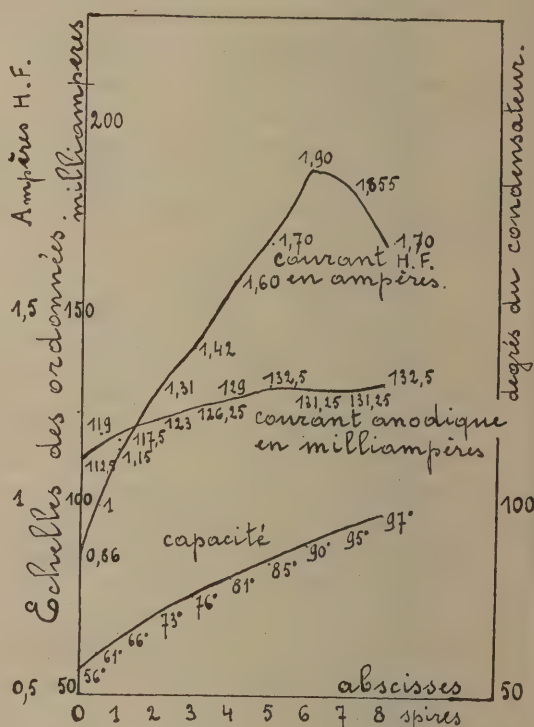 Ampères H.F.
Echelles des ordonnées.
milliampères
degrés du condensateur.
200
1,5
150
1
100
0,5
50
100
50
1,90
1,855
1,70
1,70
1,60
1,42
1,31
1,15
1
0,86
courant H.F.
en ampères.
112,5
119
117,5
123
126,25
129
132,5
131,25
131,25
132,5
courant anodique
en milliampères
capacité
56°
61°
66°
73°
76°
81°
85°
90°
95°
97°
abscisses
0 1 2 3 4 5 6 7 8 spires